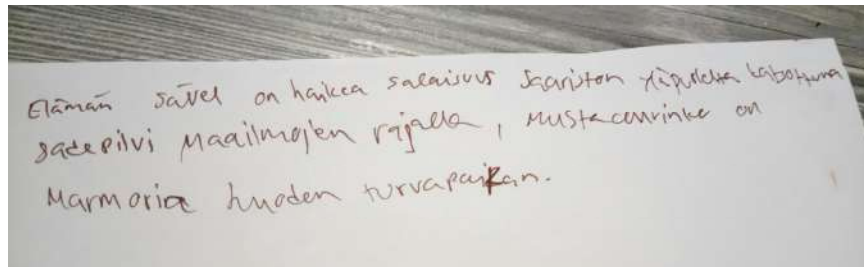 Elämän sävel on haikea salaisuus Saariston yläpuolella katsottuna
sadepilvi Maailmojen rajalla, Mustaaurinko on
Marmoria luoden turvapaikan.